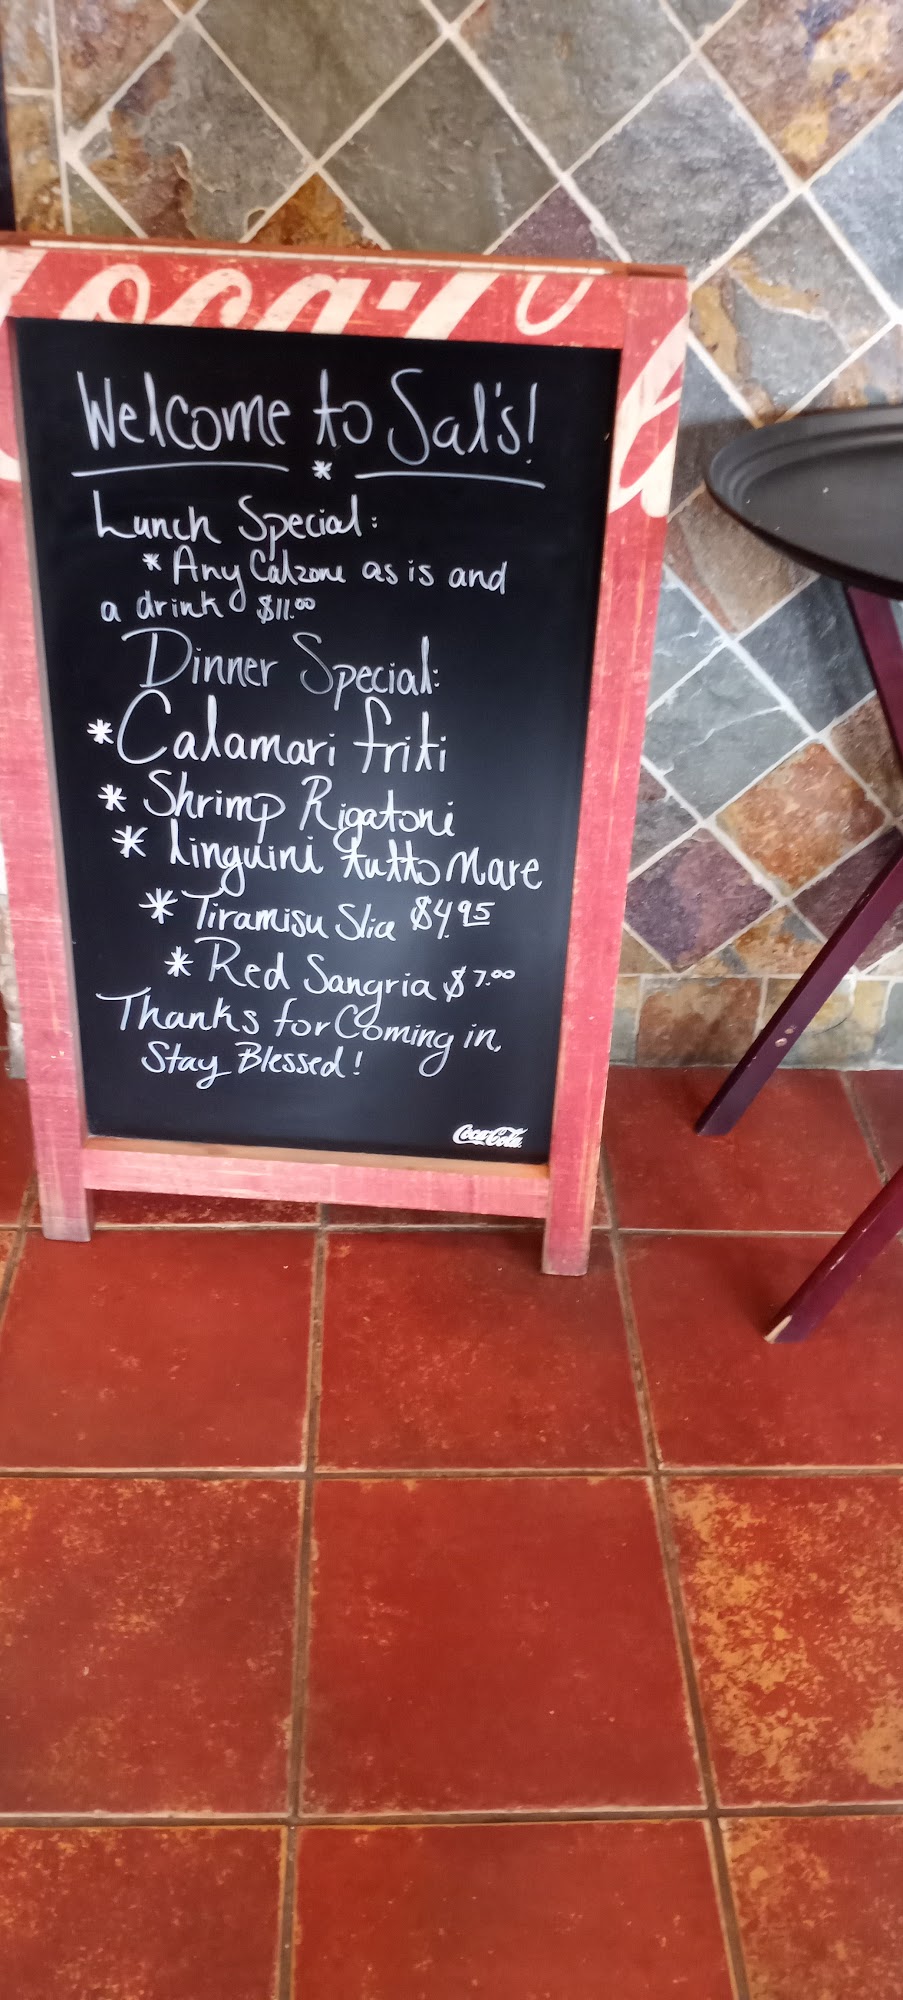 Coca-Co
Welcome to Sal's!
*
Lunch Special:
* Any Calzone as is and
a drink $11.00
Dinner Special:
* Calamari friti
* Shrimp Rigatoni
* Linguini tutto Mare
* Tiramisu Slice $4.95
* Red Sangria $7.00
Thanks for Coming in,
Stay Blessed!
Coca-Cola